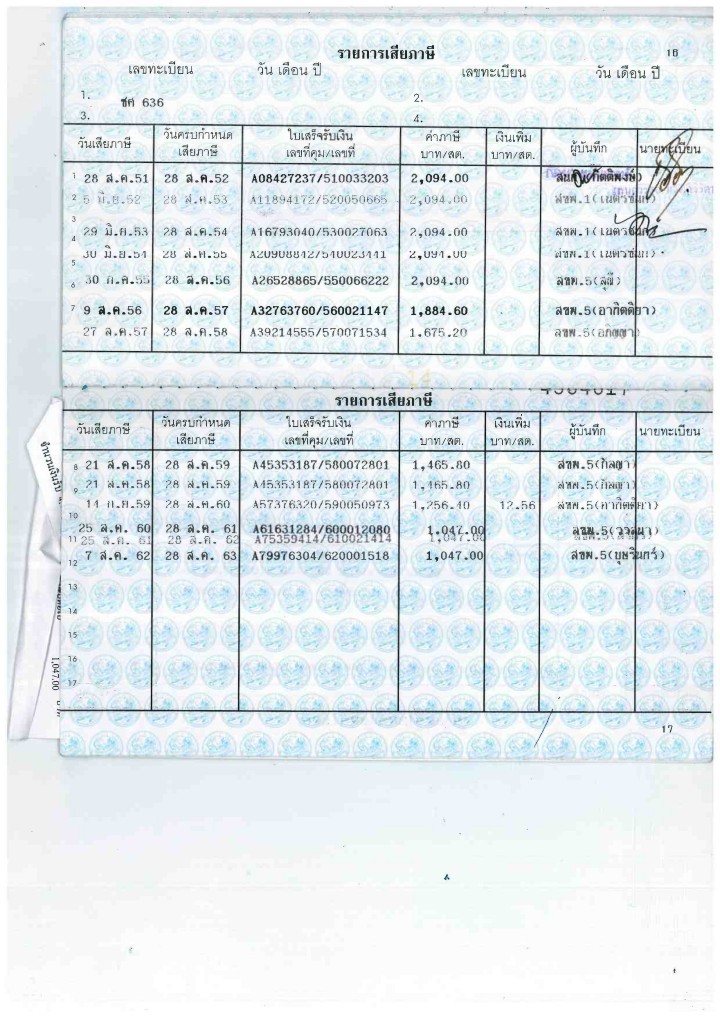 รายการเสียภาษี 16
เลขทะเบียน วัน เดือน ปี เลขทะเบียน วัน เดือน ปี
1. ชศ 636 2.
3. 4.
วันเสียภาษี วันครบกำหนดเสียภาษี ใบเสร็จรับเงิน เลขที่คุม/เลขที่ ค่าภาษี บาท/สต. เงินเพิ่ม บาท/สต. ผู้บันทึก นายทะเบียน
1 28 ส.ค.51 28 ส.ค.52 A08427237/510033203 2,094.00
2 5 มิ.ย.52 28 ส.ค.53 A11894172/520050665 2,094.00 สขพ.1(เนตรชนก)
3
29 มิ.ย.53 28 ส.ค.54 A16793040/530027063 2,094.00 สขพ.1(เนตรชนก)
4
30 มิ.ย.54 28 ส.ค.55 A20908842/540023441 2,094.00 สขพ.1(เนตรชนก)
5
30 ก.ค.55 28 ส.ค.56 A26528865/550066222 2,094.00 สขพ.5
6
7 9 ส.ค.56 28 ส.ค.57 A32763760/560021147 1,884.60 สขพ.5(อากิตติยา)
27 ส.ค.57 28 ส.ค.58 A39214555/570071534 1,675.20 สขพ.5
รายการเสียภาษี
วันเสียภาษี วันครบกำหนดเสียภาษี ใบเสร็จรับเงิน เลขที่คุม/เลขที่ ค่าภาษี บาท/สต. เงินเพิ่ม บาท/สต. ผู้บันทึก นายทะเบียน
8 21 ส.ค.58 28 ส.ค.59 A45353187/580072801 1,465.80 สขพ.5(กัลญา)
9 21 ส.ค.58 28 ส.ค.59 A45353187/580072801 1,465.80 สขพ.5(กัลญา)
14 ก.ย.59 28 ส.ค.60 A57376320/590050973 1,256.40 12.56 สขพ.5(อากิตติยา)
10
25 ส.ค. 60 28 ส.ค. 61 A61631284/600012080 1,047.00 สขพ.5
11 25 ส.ค. 61 28 ส.ค. 62 A75359414/610021414 1,047.00
7 ส.ค. 62 28 ส.ค. 63 A79976304/620001518 1,047.00 สขพ.5(บุษรินทร์)
12
13
14
15
16
17
17
จำนวนเงินรับ
1,047.00